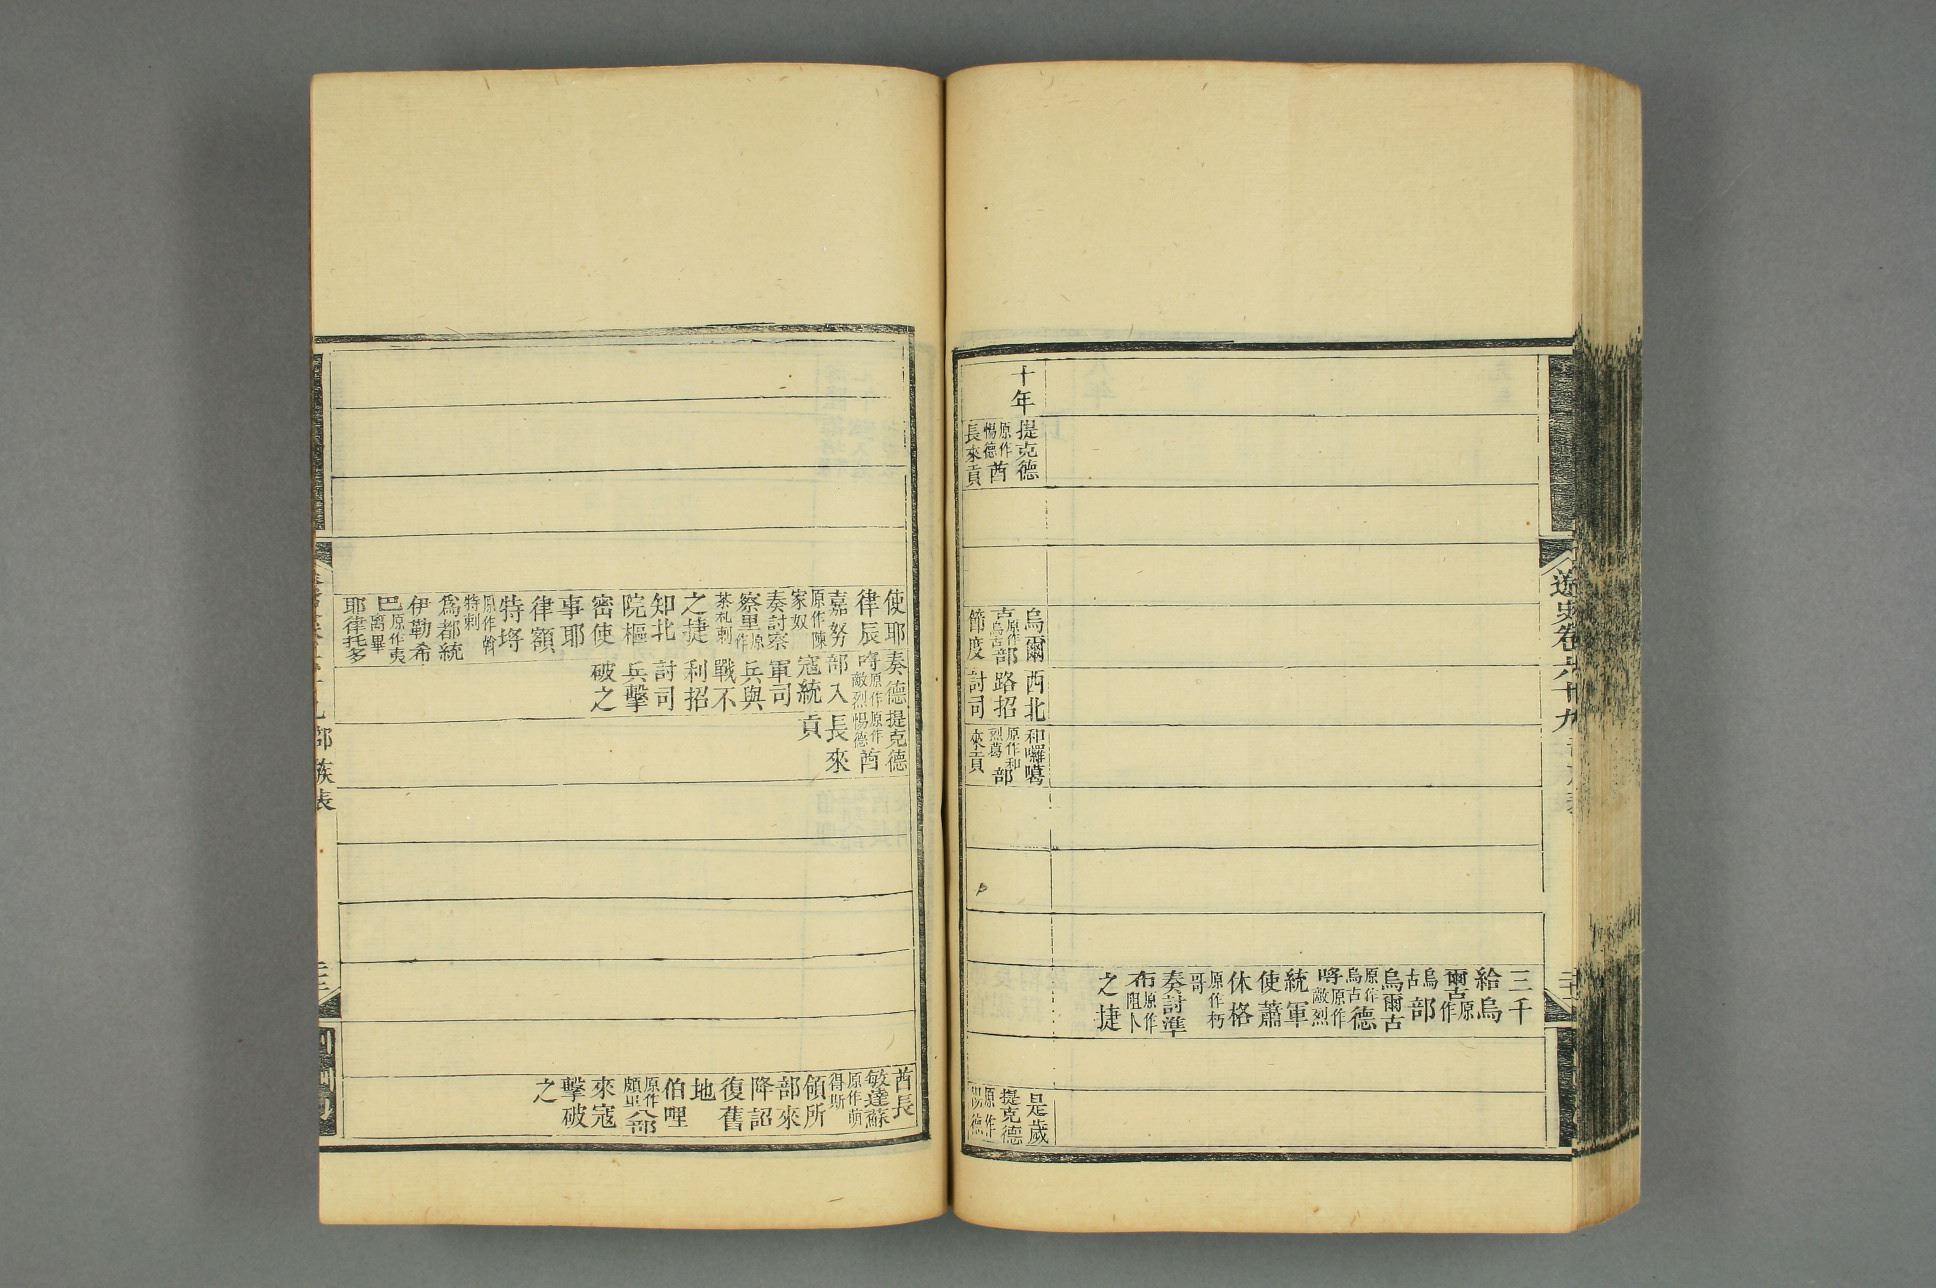 遼史卷六十九
三千
給烏
爾古原作
烏古部
烏爾古
原作烏古德
呼原作敵烈
統軍
使蕭
休格
原作朽
哥
奏討準
布原作阻卜
之捷
十年
提克德
原作惕德酋
長來貢
烏爾
古原作烏古部
節度
西北
路招
討司
和囉噶
原作和烈葛部
來貢
是歲
提克德
原作惕德
使耶
律辰
嘉努
原作陳家奴
奏討察
察里原作
茶札剌
之捷
知北
院樞
密使
事耶
律額
特埒
原作斡特剌
為都統
伊勒希
巴原作夷离畢
耶律托多
奏德
呼原作敵烈
部入
寇統
軍司
兵與
戰不
利招
討司
兵擊
破之
提克德
原作惕德酋
長來
貢
酋長
敏達蘇
原作萌得斯
領所
部來
降詔
復舊
地
伯哩
原作頗里八部
來寇
擊破
之
部族表